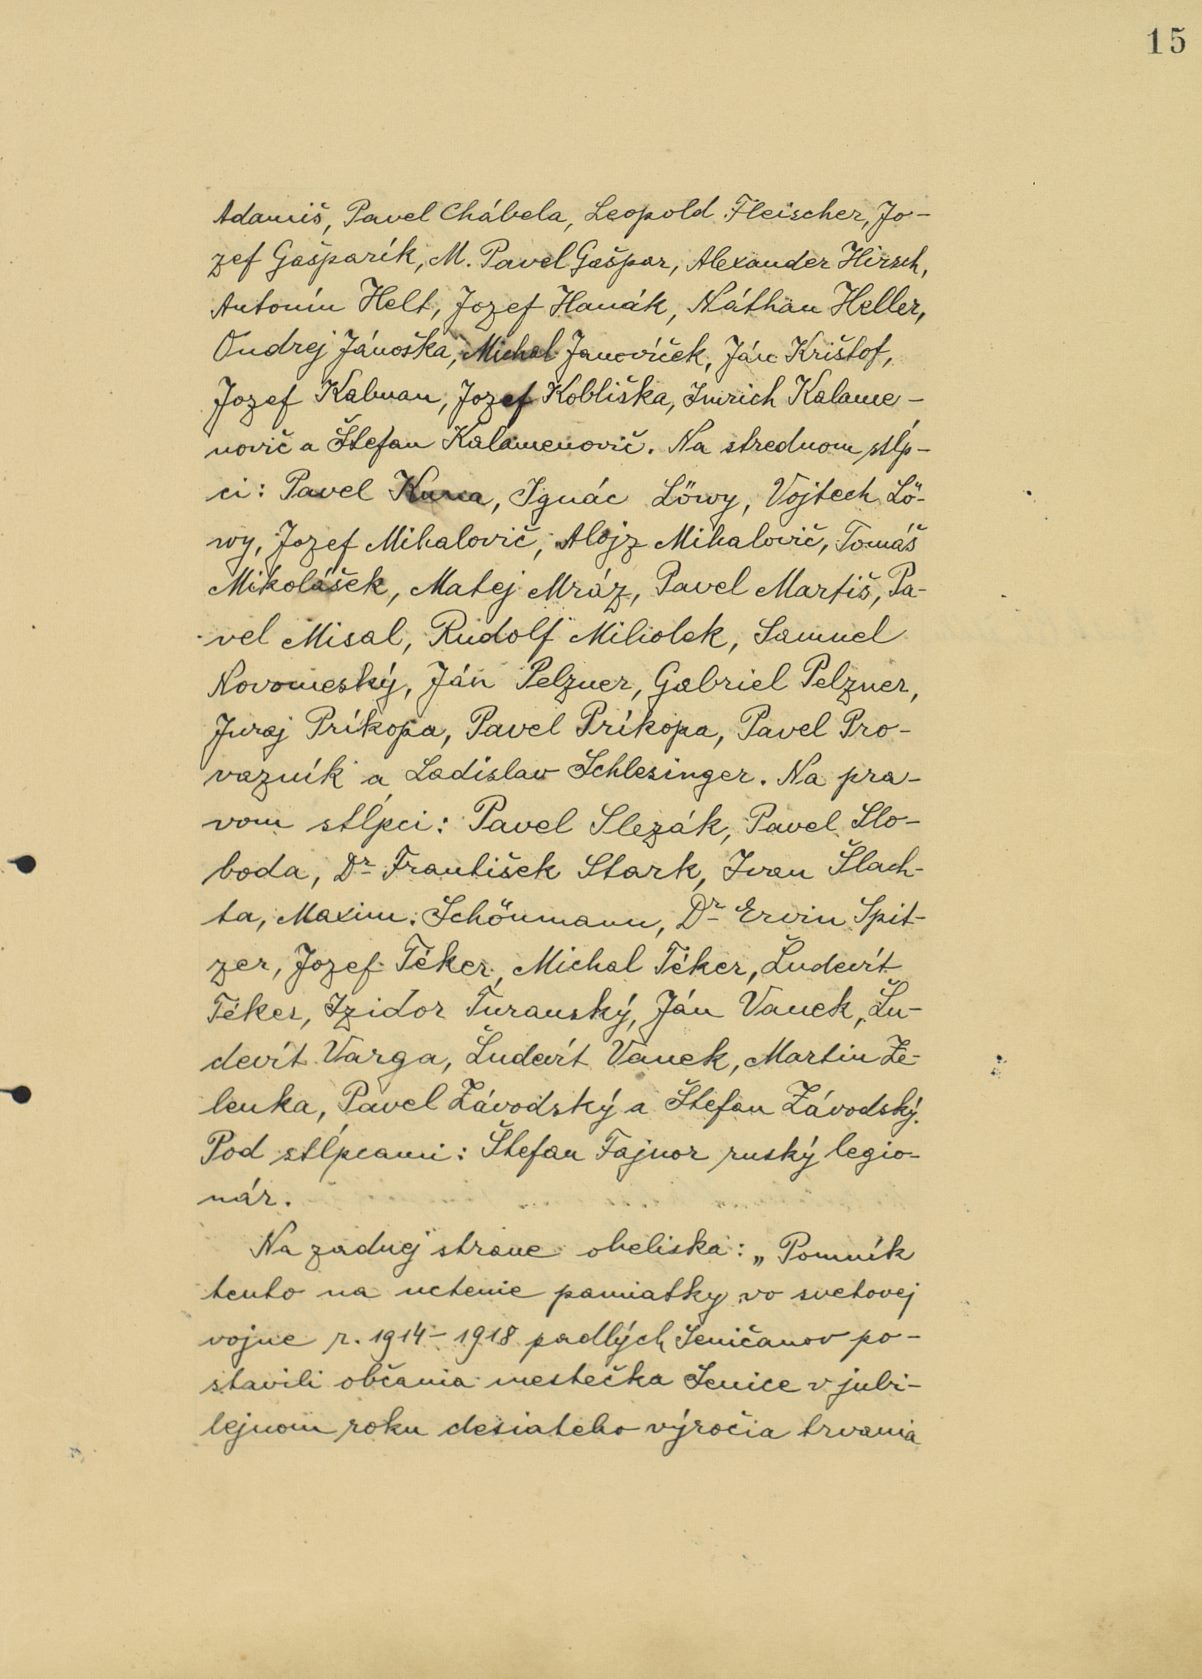 15
Adamiš, Pavel Chábela, Leopold Fleischer, Jo-
zef Gašparík, M. Pavel Gašpar, Alexander Hirsch,
Antonín Helt, Jozef Hanák, Náthan Heller,
Ondrej Jánoška, Michal Janovíček, Ján Krištof,
Jozef Kalman, Jozef Kobliška, Imrich Kalame-
novič a Štefan Kalamenovič. Na strednom stĺp-
ci: Pavel Kuna, Ignác Löwy, Vojtech Lö-
wy, Jozef Mihalovič, Alojz Mihalovič, Tomáš
Mikolášek, Matej Mráz, Pavel Martiš, Pa-
vel Misal, Rudolf Miliolek, Samuel
Novomeský, Ján Pelzner, Gabriel Pelzner,
Juraj Príkopa, Pavel Príkopa, Pavel Pro-
vazník a Ladislav Schlesinger. Na pra-
vom stĺpci: Pavel Slezák, Pavel Slo-
boda, Dr František Stark, Ivan Šlach-
ta, Maxim. Schönmann, Dr Ervin Spit-
zer, Jozef Téker, Michal Téker, Ľudevít
Téker, Izidor Turanský, Ján Vanek, Ľu-
devít Varga, Ľudevít Vanek, Martin Ze-
lenka, Pavel Závodský a Štefan Závodský.
Pod stĺpcami: Štefan Fajnor ruský legio-
nár.
Na zadnej strane obeliska: „Pomník
tento na uctenie pamiatky vo svetovej
vojne r. 1914-1918 padlých Seničanov po-
stavili občania mestečka Senice v jubi-
lejnom roku desiateho výročia trvania